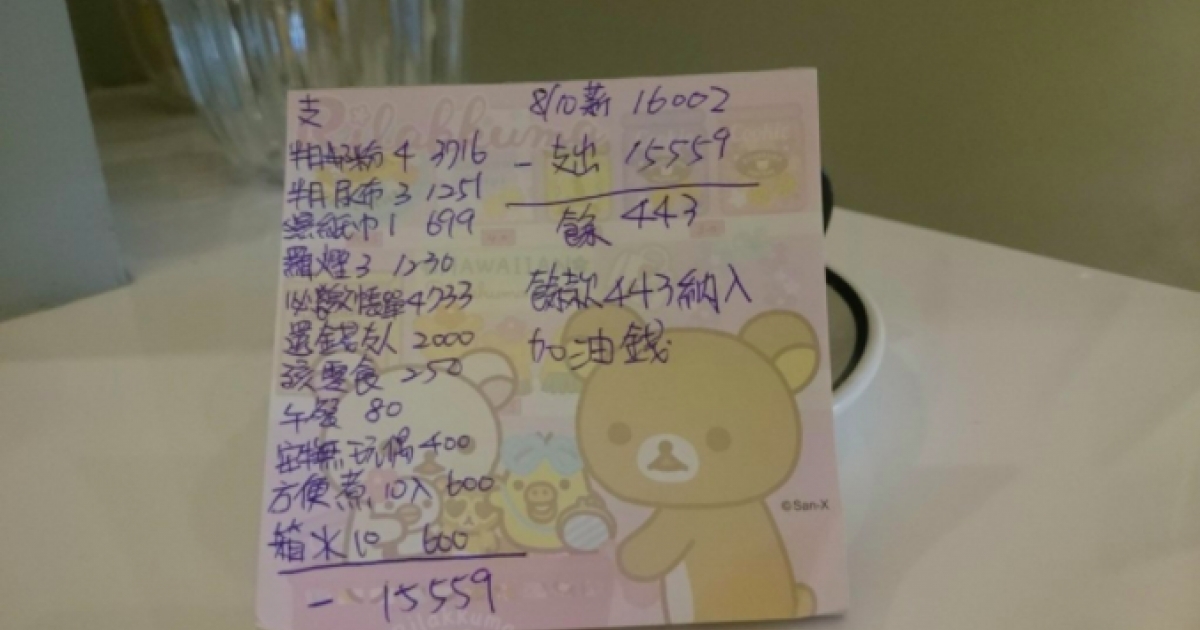 支
半月奶粉 4 3716
半月尿布 3 1251
濕紙巾 1 699
3 1230
必繳 4733
還錢友人 2000
孩零食 250
午餐 80
安撫玩偶 400
方便煮 10入 600
箱水 10 600
- 15559
8/10薪 16002
- 支出 15559
餘 443
餘款443納入
加油錢
Rilakkuma
HAWAIIAN
©San-X